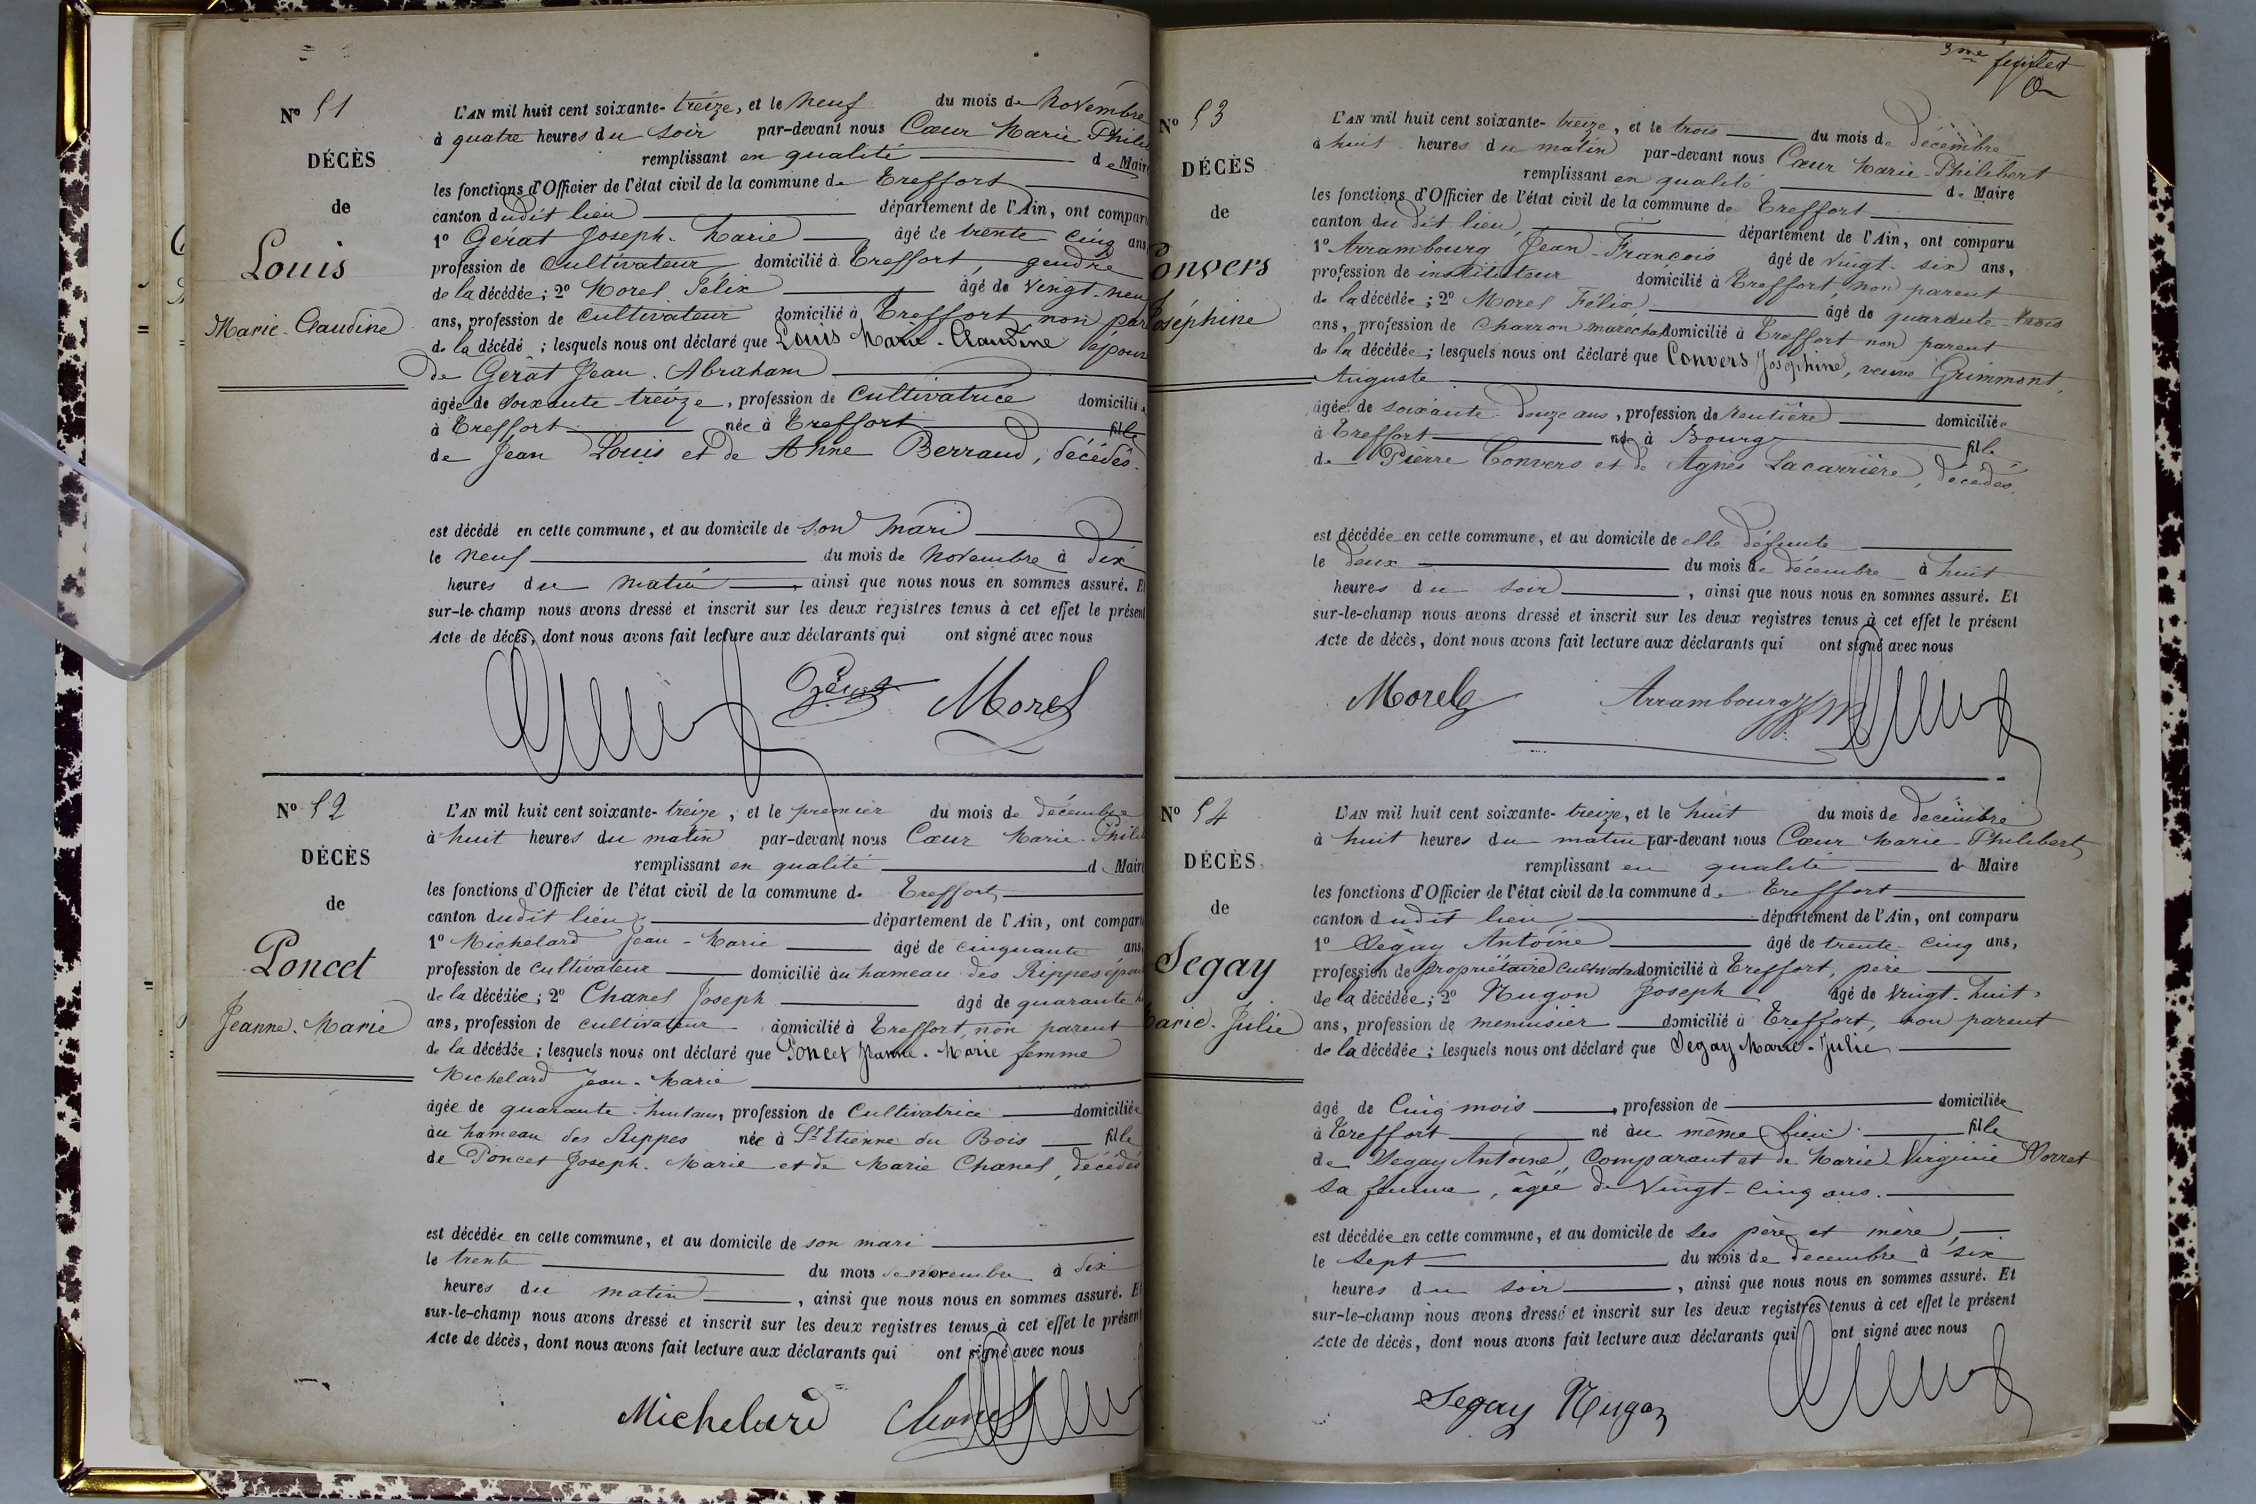 N° 51
DÉCÈS
de
Louis
Marie-Claudine
L'AN mil huit cent soixante-treize, et le neuf du mois de Novembre
à quatre heures du soir par-devant nous Cœur Marie Phili
remplissant en qualité de Maire
les fonctions d'Officier de l'état civil de la commune de Treffort
canton dudit lieu département de l'Ain, ont comparu
1° Gérat Joseph-Marie âgé de trente cinq ans
profession de Cultivateur domicilié à Treffort, gendre
de la décédée; 2° Morel Félix âgé de vingt-neuf
ans, profession de Cultivateur domicilié à Treffort non par
de la décédé ; lesquels nous ont déclaré que Louis Marie-Claudine épouse
de Gérat Jean-Abraham
âgée de soixante-treize, profession de Cultivatrice domiciliée
à Treffort née à Treffort fille
de Jean Louis et de Anne Berraud, décédés.
est décédé en cette commune, et au domicile de son mari
le neuf du mois de Novembre à dix
heures du matin, ainsi que nous nous en sommes assuré. Et
sur-le-champ nous avons dressé et inscrit sur les deux registres tenus à cet effet le présent
Acte de décès, dont nous avons fait lecture aux déclarants qui ont signé avec nous
Gérat Morel
N° 52
DÉCÈS
de
Poncet
Jeanne-Marie
L'AN mil huit cent soixante-treize, et le premier du mois de décembre
à huit heures du matin par-devant nous Cœur Marie-Phili
remplissant en qualité de Maire
les fonctions d'Officier de l'état civil de la commune de Treffort
canton dudit lieu département de l'Ain, ont comparu
1° Michelard Jean-Marie âgé de cinquante ans
profession de cultivateur domicilié au hameau des Rippes époux
de la décédée; 2° Chanel Joseph âgé de quarante
ans, profession de cultivateur domicilié à Treffort, non parent
de la décédée; lesquels nous ont déclaré que Poncet Jeanne-Marie femme
Michelard Jean-Marie
âgée de quarante-huit ans, profession de Cultivatrice domiciliée
au hameau des Rippes née à St Etienne du Bois fille
de Poncet Joseph-Marie et de Marie Chanel, décédés
est décédée en cette commune, et au domicile de son mari
le trente du mois de novembre à dix
heures du matin, ainsi que nous nous en sommes assuré. Et
sur-le-champ nous avons dressé et inscrit sur les deux registres tenus à cet effet le présent
Acte de décès, dont nous avons fait lecture aux déclarants qui ont signé avec nous
Michelard Chanel
3me feuillet
N° 53
DÉCÈS
de
Convers
Joséphine
L'AN mil huit cent soixante-treize, et le trois du mois de décembre
à huit heures du matin par-devant nous Cœur Marie-Philibert
remplissant en qualité de Maire
les fonctions d'Officier de l'état civil de la commune de Treffort
canton du dit lieu, département de l'Ain, ont comparu
1° Arrambourg Jean-François âgé de vingt-six ans,
profession de instituteur domicilié à Treffort, non parent
de la décédée; 2° Morel Félix, âgé de quarante-trois
ans, profession de Charron marechal domicilié à Treffort non parent
de la décédée; lesquels nous ont déclaré que Convers Joséphine, veuve Grimmont,
Auguste.
âgée de soixante-douze ans, profession de rentière domiciliée
à Treffort née à Bourg fille
de Pierre Convers et de Agnès Lacarrière, décédés.
est décédée en cette commune, et au domicile de elle défunte
le deux du mois de décembre à huit
heures du soir, ainsi que nous nous en sommes assuré. Et
sur-le-champ nous avons dressé et inscrit sur les deux registres tenus à cet effet le présent
Acte de décès, dont nous avons fait lecture aux déclarants qui ont signé avec nous
Morel Arrambourg
N° 54
DÉCÈS
de
Segay
Marie-Julie
L'AN mil huit cent soixante-treize, et le huit du mois de décembre
à huit heures du matin par-devant nous Cœur Marie-Philibert
remplissant en qualité de Maire
les fonctions d'Officier de l'état civil de la commune de Treffort
canton dudit lieu département de l'Ain, ont comparu
1° Segay Antoine âgé de trente-cinq ans,
profession de propriétaire Cultivateur domicilié à Treffort, père
de la décédée; 2° Nugon Joseph âgé de vingt-huit
ans, profession de menuisier domicilié à Treffort, non parent
de la décédée; lesquels nous ont déclaré que Segay Marie-Julie
âgé de Cinq mois, profession de domiciliée
à Treffort né au même lieu fille
de Segay Antoine, Comparant et de Marie Virginie Morret
sa femme, âgée de vingt-cinq ans.
est décédée en cette commune, et au domicile de ses père et mère,
le sept du mois de decembre à six
heures du soir, ainsi que nous nous en sommes assuré. Et
sur-le-champ nous avons dressé et inscrit sur les deux registres tenus à cet effet le présent
Acte de décès, dont nous avons fait lecture aux déclarants qui ont signé avec nous
Segay Nugon